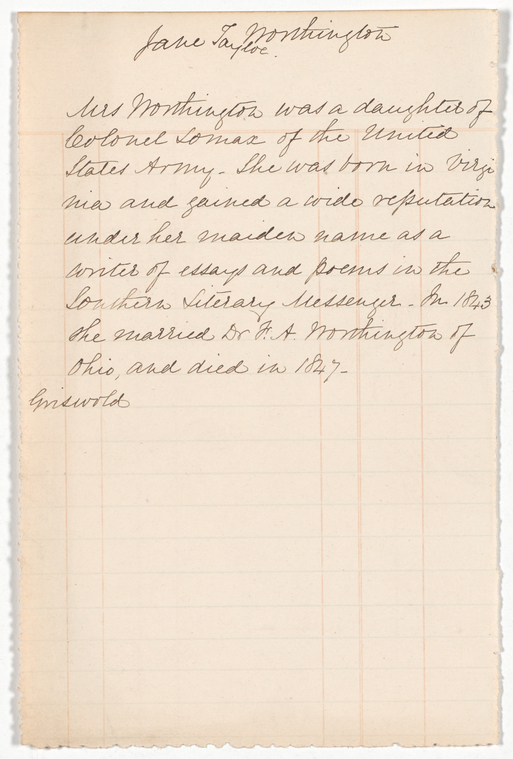 Jane Tayloe Worthington
Mrs Worthington was a daughter of
Colonel Lomax of the United
States Army - She was born in Virgi
nia and gained a wide reputation
under her maiden name as a
writer of essays and poems in the
Southern Literary Messenger - In 1843
she married Dr F. A. Worthington of
Ohio, and died in 1847 -
Griswold